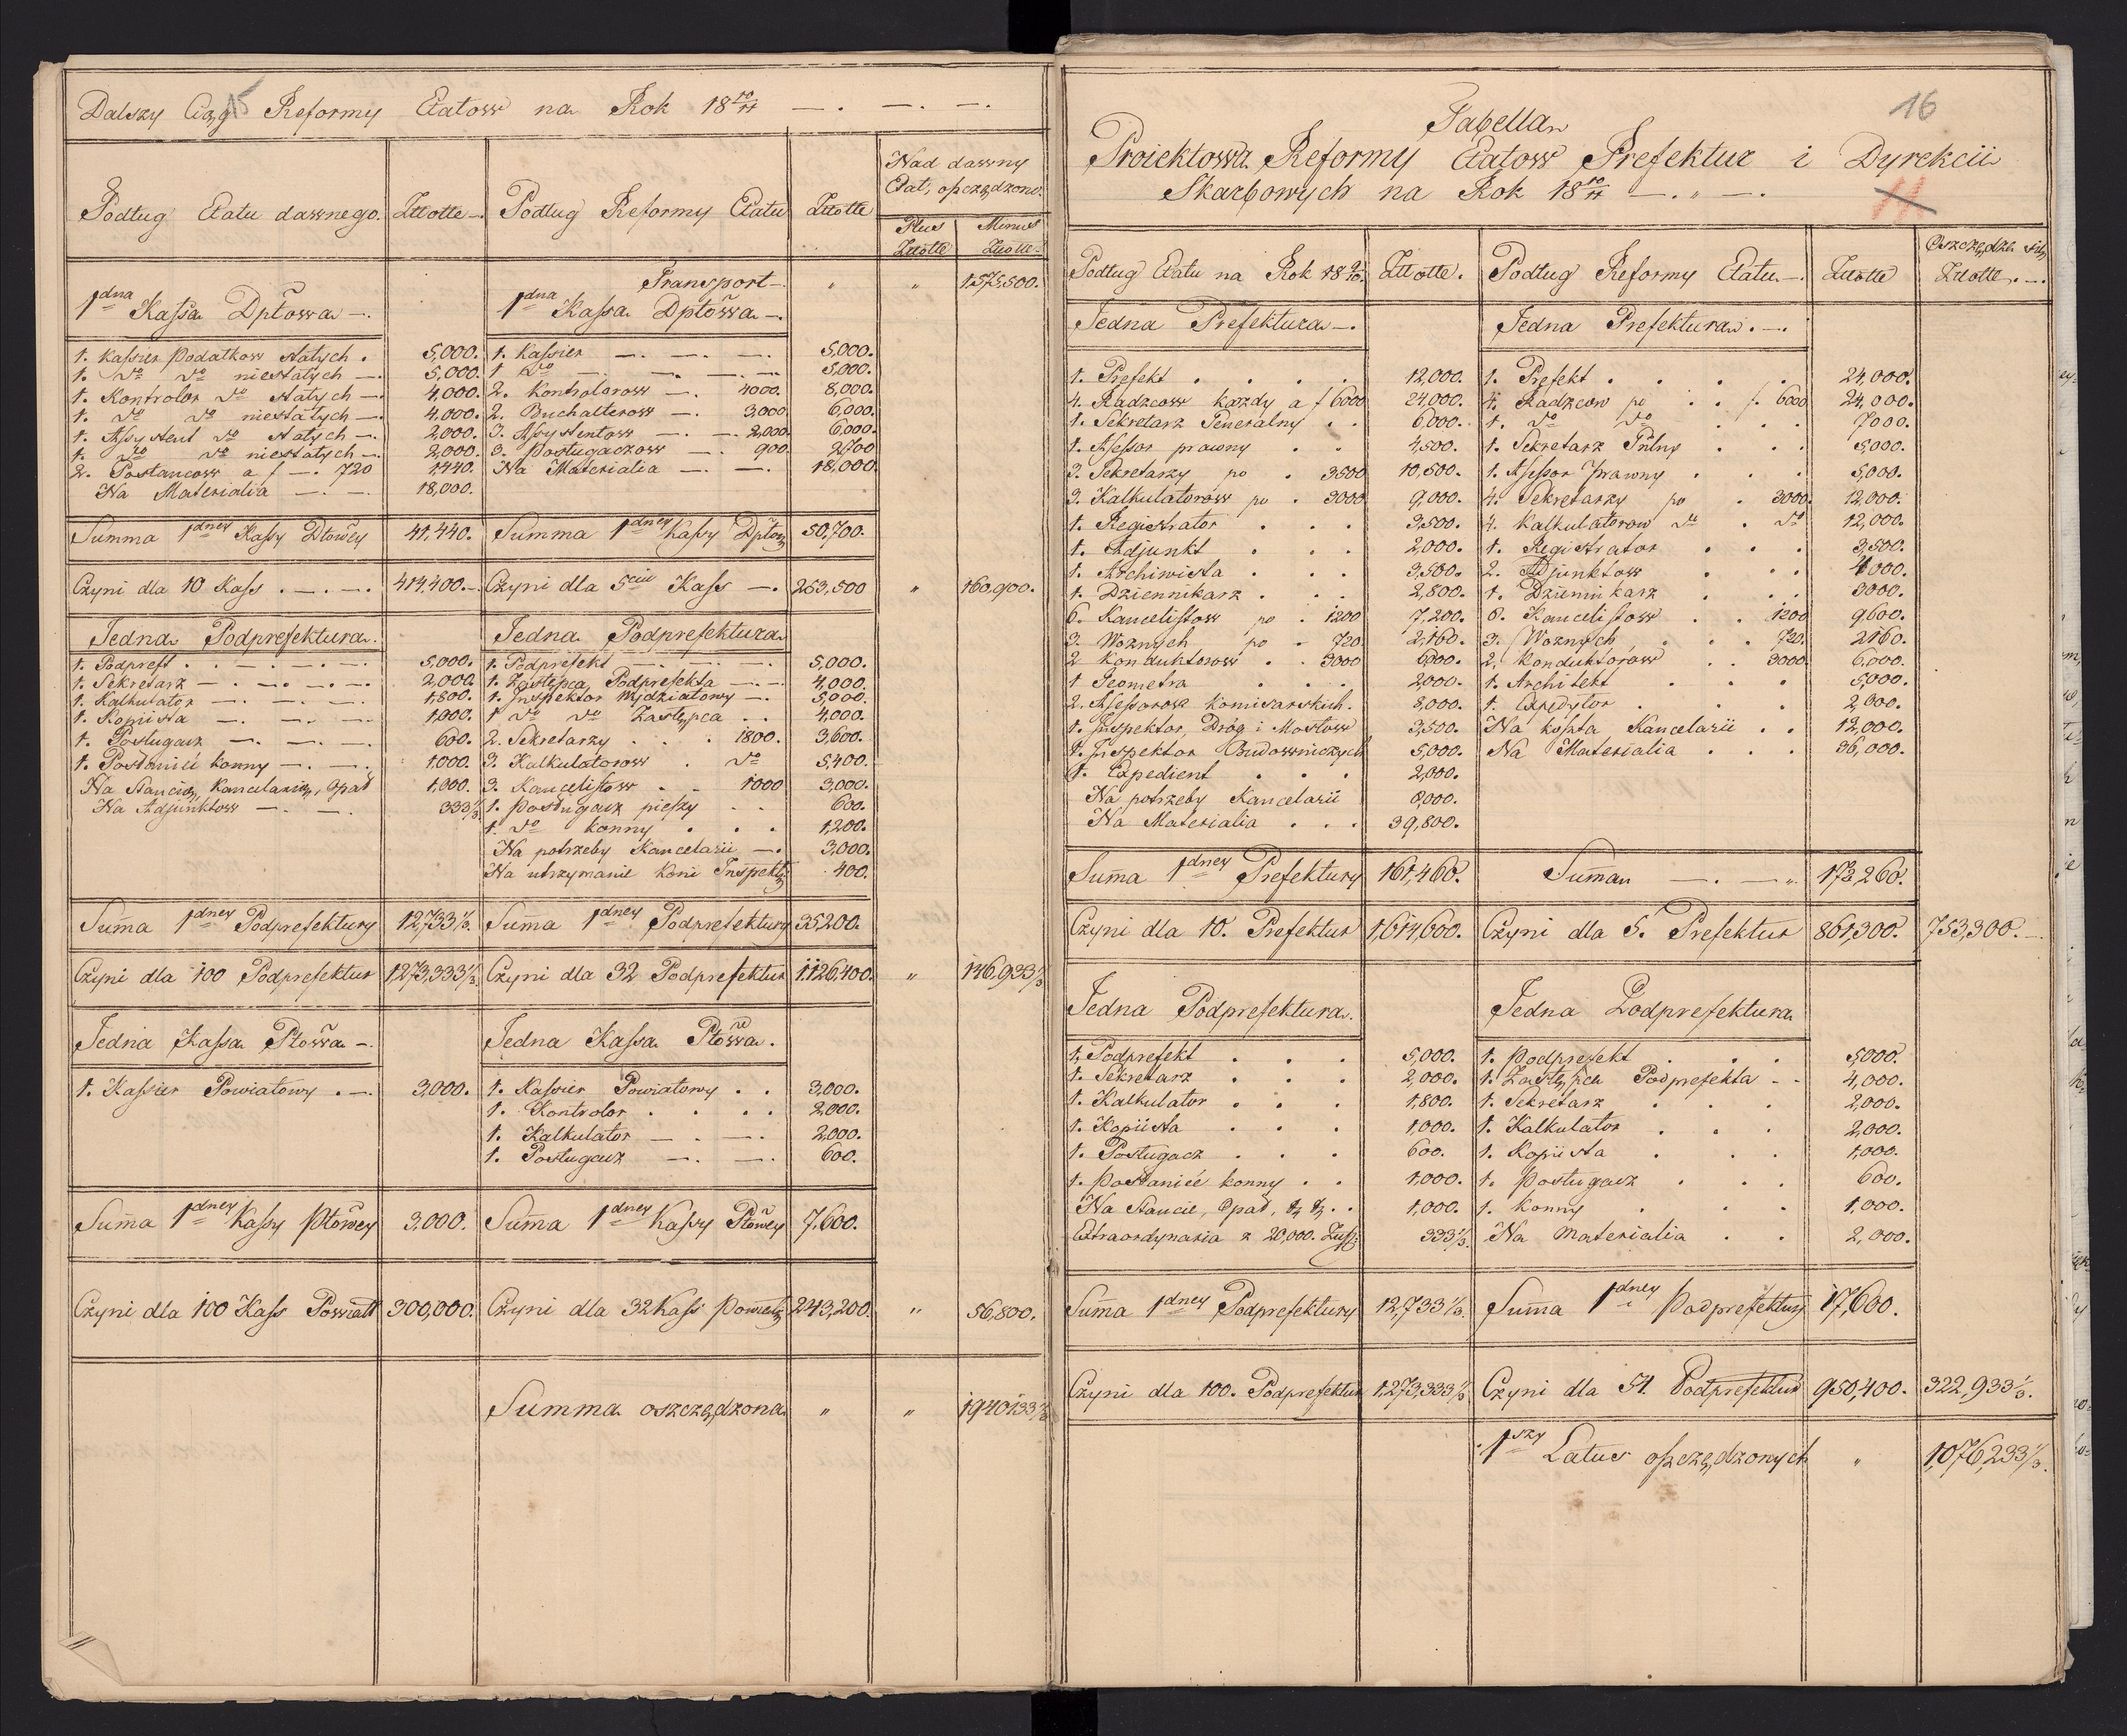 Dalszy Ciąg Reformy Etatow na Rok 18 10/11 —. —. —.
15
Podług Etatu dawnego. Złłotte —. Podług Reformy Etatu Złłotte
Nad dawny
Etat, oszczędzono.
Plus Minus
Złłotte Złłotte
Transport —. " " 1.575.500.
1dna Kassa Dptowa —. 1dna Kassa Dptowa —.
1. Kassier podatkow stałych . 5,000. 1. Kassier —. —. —. 5,000.
1. do do niestałych —. 5,000. 1 do —. —. —. 5,000.
1. Kontrolor do stałych —. 4,000. 2. Kontrolorow —. 4000. 8,000.
1. do do niestałych —. 4,000. 2. Buchalterow —. 3,000. 6,000.
1. Assystent do stałych —. 2,000. 3. Assystentow —. —. 2,000. 6,000.
1. do do niestałych —. 2,000. 3. Posługaczow —. 900. 2700
2. Posłancow a f —. 720 1440. Na Materialia —. —. 18,000.
Na Materialia —. —. 18,000.
Summa 1dney Kassy Dtowey 41,440. Summa 1dney Kassy Dptowey 50,700.
Czyni dla 10 Kass . —. —. 414,400. —. Czyni dla 5ciu Kass —. 253,500 " 160,900.
Jedna Podprefektura. Jedna Podprefektura
1. Podpreft . . —. —. —. 5,000. 1. Podprefekt —. —. —. 5,000.
1. Sekretarz —. —. —. —. 2,000. 1. Zastępca Podprefekta —. —. 4,000.
1. Kalkulator —. —. —. 1,800. 1. Inspektor Wydziałowy —. 5,000.
1. Kopiista —. —. —. 1,000. 1 do do Zastępca . . 4,000.
1. Posługacz —. —. —. 600. 2. Sekretarzy . . . 1800. 3,600.
1. Posłaniec konny —. —. 1,000. 3. Kalkulatorow . do 5,400.
Na Stancią, Kancelarią, Opał 1,000. 3. Kancelistow . . 1000 3,000.
Na Adjunktow —. —. 333 1/3 1. Posługacz pieszy . . 600.
1. do konny . . . 1,200.
Na potrzeby Kancelarii —. 3,000.
Na utrzymanie koni Inspekt. 400.
Summa 1dney Podprefektury 12,733 1/3. Suma 1dney Podprefektury 35,200.
Czyni dla 100 Podprefektur 1,273,333 1/3. Czyni dla 32 Podprefektur 1.126,400. " 146,933 1/3
Jedna Kassa Ptowa —. Jedna Kassa Ptowa.
1. Kassier Powiatowy . —. 3,000. 1. Kassier Powiatowy . . 3,000.
1. Kontrolor . . . . 2,000.
1. Kalkulator —. —. 2,000.
1. Posługacz —. —. 600.
Suma 1dney Kassy Ptowey 3,000. Suma 1dney Kassy Ptowey 7,600.
Czyni dla 100 Kass Powiatt 300,000. Czyni dla 32 Kass Powiat. 243,200. " 56,800.
Summa oszczędzona " " 1940133 1/3
16
Tabella
Proiektowa Reformy Etatow Prefektur i Dyrekcii
Skarbowych na Rok 18 10/11 —. " —.
11
Podług Etatu na Rok 18 9/10. Złłotte. Podług Reformy Etatu —. Złłotte Oszczędza się Złłotte. —.
Jedna Prefektura —. Jedna Prefektura. —.
1. Prefekt . . . . 12,000. 1. Prefekt . . . . 24,000.
4. Radzcow każdy a f 6000 24,000. 4. Radzcow po . . f. 6000 24,000.
1. Sekretarz Generalny . . 6,000. 1. do do . . . 7000.
1. Assessor prawny . . 4,500. 1. Sekretarz Gnlny . . . 5,000.
3. Sekretarzy po . 3500 10,500. 1. Assessor Prawny . . . 5,000.
3. Kalkulatorow po . 3000 9,000. 4. Sekretarzy po . 3000. 12,000.
1. Registrator . . . 3,500. 4. Kalkulatorow do . do 12,000.
1. Adjunkt . . . 2,000. 1. Registrator . . . 3,500.
1. Archiwista . . . 3,500. 2. Adjunktow . . . 4000.
1. Dziennikarz . . . 2,800. 1. Dziennikarz . . . 3000.
6. Kancelistow po . 1200 7,200. 8. Kancelistow . . 1200 9,600.
3. Woznych po . 720. 2,160. 3. Woznych . . . 720. 2160.
2 Konduktorow . . 3000 6000. 2. Konduktorow . . 3000. 6,000.
1 Geometra . . . 2000. 1. Architekt . . . 5,000.
2. Assessorow komisarskich. 8,000. 1. Expedytor . . . 2,000.
1. Inspektor, Dróg i Mostow 3,500. Na koszta Kancelarii . . 12,000.
1. Inspektor Budowniczych 5,000. Na Materialia . . . 36,000.
1. Expedient . . . 2,000.
Na potrzeby Kancelarii 8,000.
Na Materialia . . . 39,800.
Suma 1dney Prefektury 161,460. Suma —. —. " 172,260.
Czyni dla 10. Prefektur 1,614,600. Czyni dla 5. Prefektur 861,300. 753,300. —.
Jedna Podprefektura. Jedna Podprefektura
1. Podprefekt . . . 5,000. 1. Podprefekt . . . 5,000.
1. Sekretarz . . . 2,000. 1. Zastępca Podprefekta . . 4,000.
1. Kalkulator . . . 1,800. 1. Sekretarz . . . 2,000.
1. Kopiista . . . 1,000. 1. Kalkulator . . . 2,000.
1. Posługacz . . . 600. 1. Kopiista . . . 1,000.
1. Posłaniec konny . . 1,000. 1. Posługacz . . . 600.
Na Stancie, Opał, &. &. . . 1,000. 1. Konny . . . 1,000.
Extraordynaria z 20,000. 333 1/3. Na Materialia . . 2,000.
Suma 1dney Podprefektury 12,733 1/3. Suma 1dney Podprefektury 17,600.
Czyni dla 100. Podprefektur 1,273,333 1/3. Czyni dla 54. Podprefektur 950,400. 322,933 1/3.
1szy Latus oszczędzonych " 1,076,233 1/3.